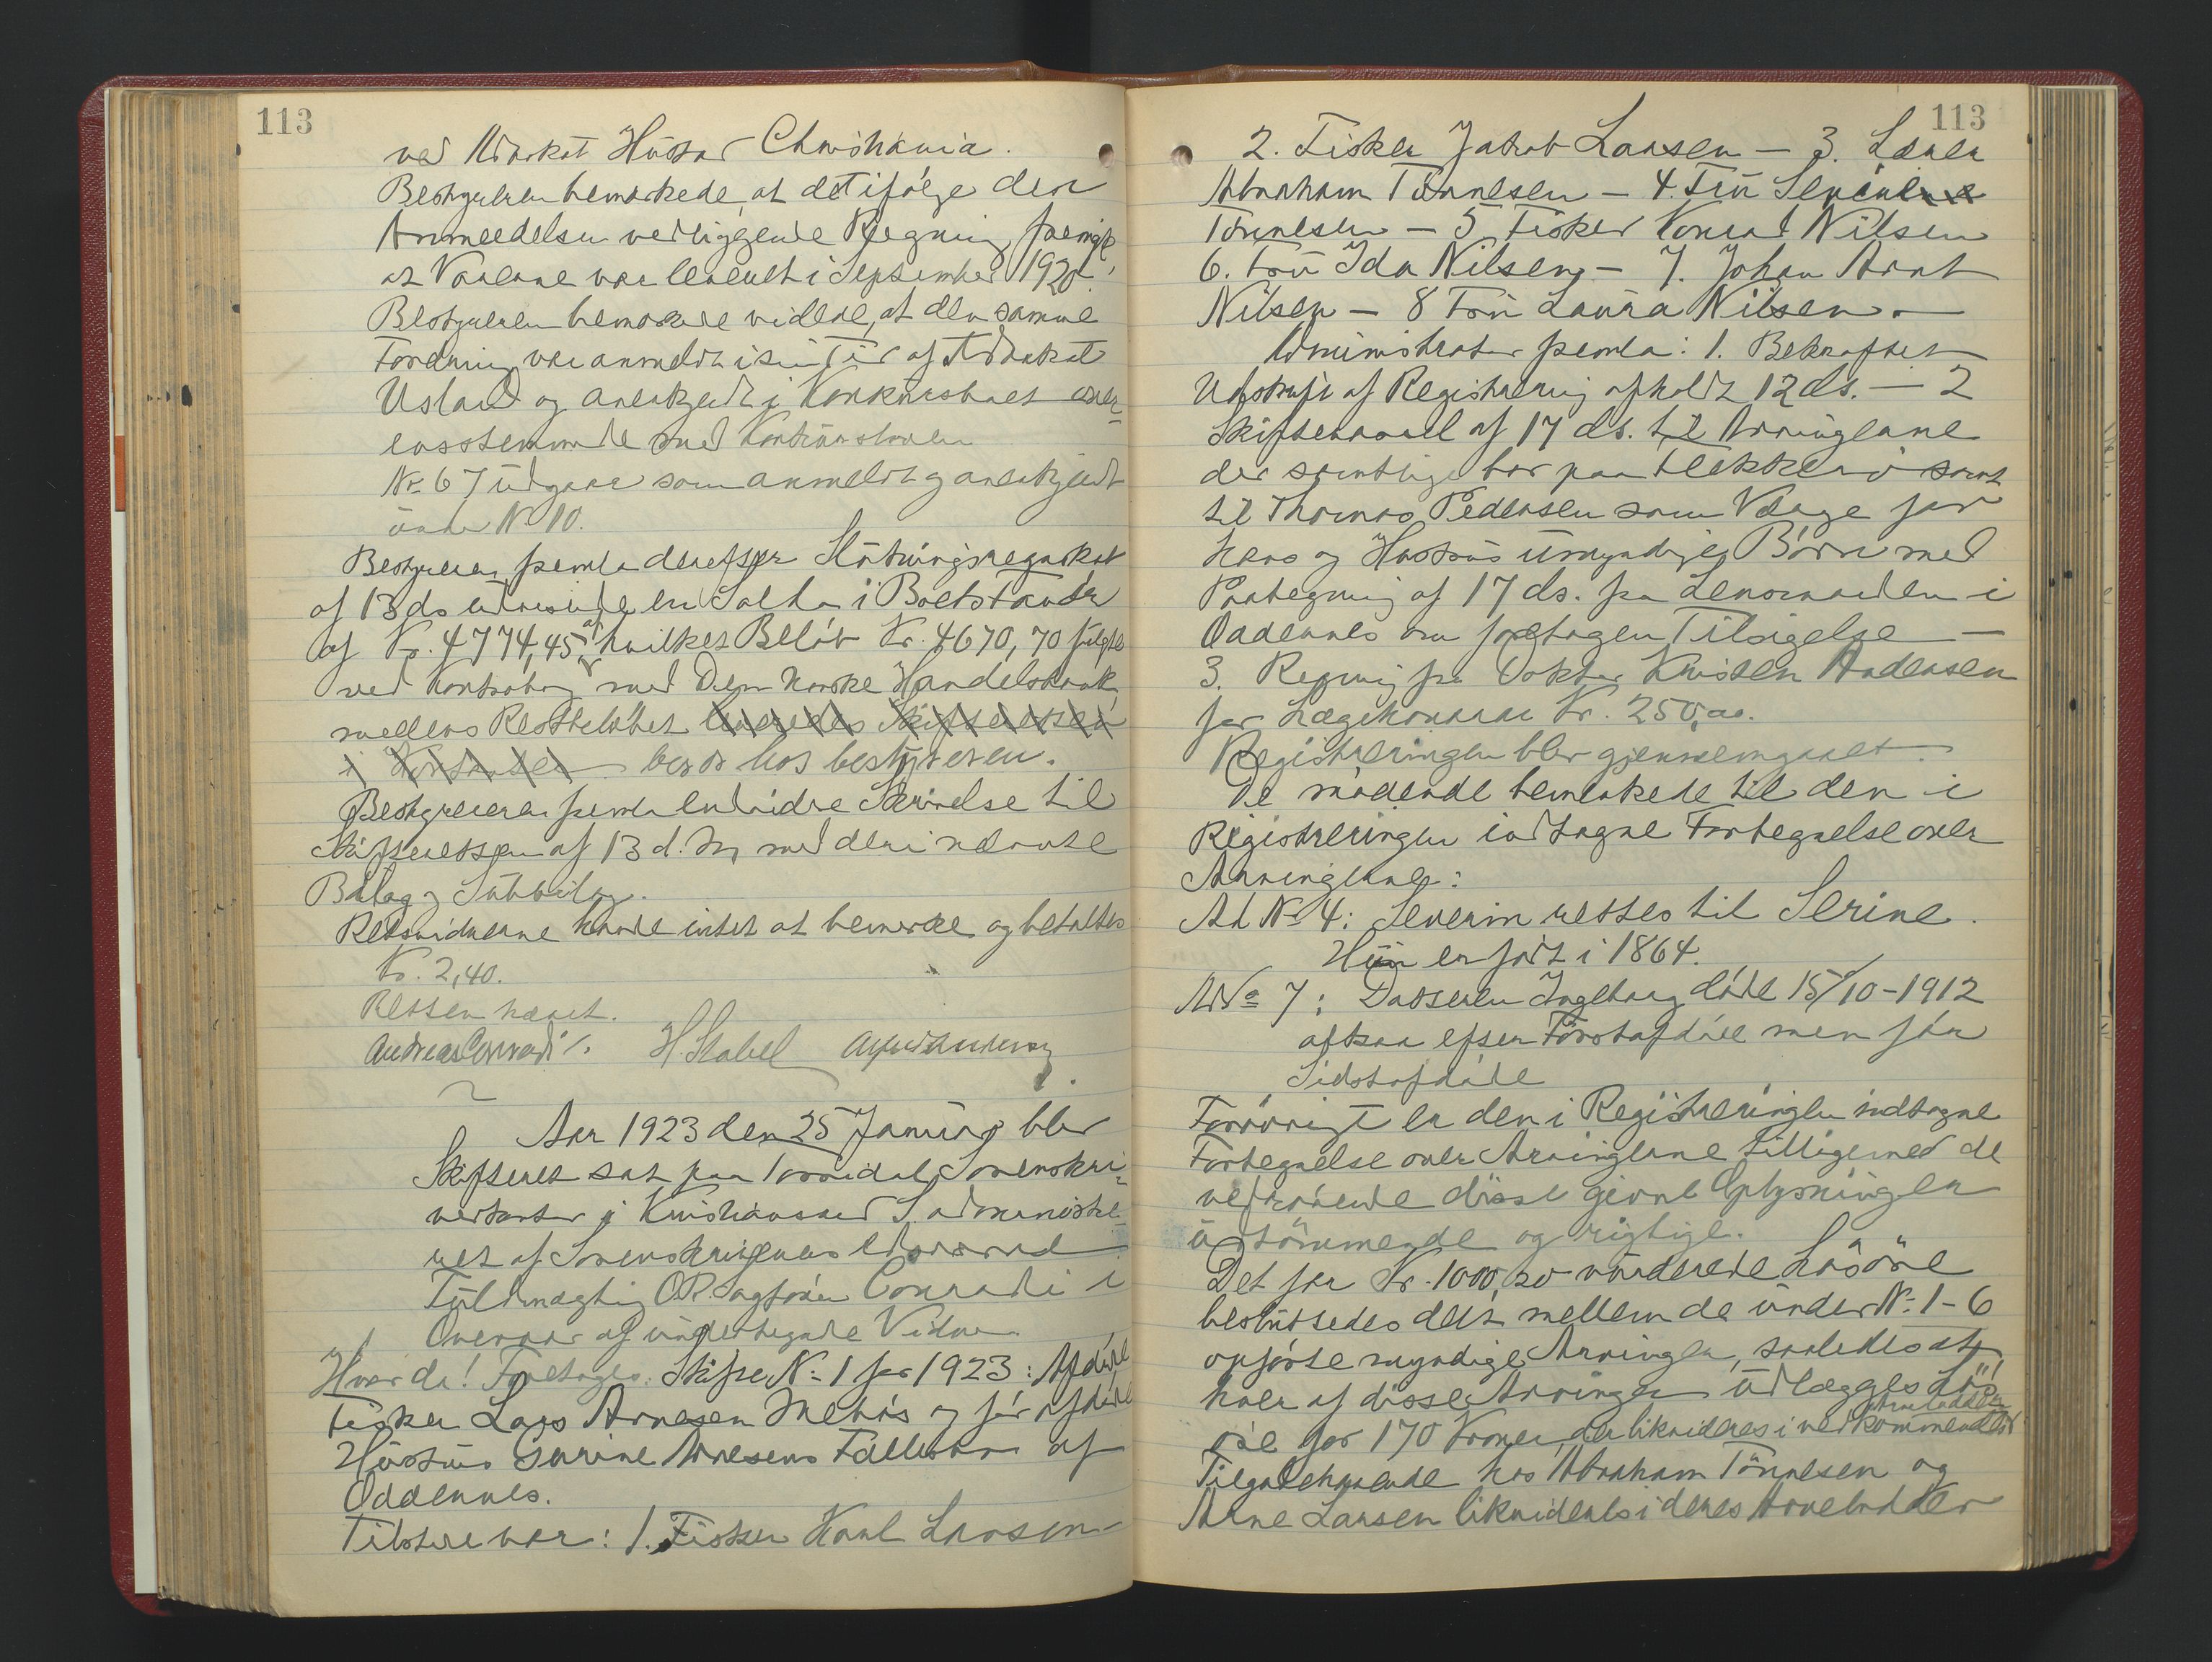 113
ved Advokat Husar Christiania.
Bestyreren bemærkede, at det ifølge den
Anmeldelsen vedliggende Regning fremgik,
at Varerne var leveret i September 1920.
Bestyreren bemærkede videre, at den samme
Fordring var anmeldt i sin Tid af Advokat
Usland og anerkjendt i Konkursboet over-
ensstemmende med Konkursloven
No 67 udgaar som anmeldt og anerkjendt
under No 10.
Bestyreren fremla derefter Slutningsregnskab
af 13 ds udvisende en Saldo i Boets Favør
af Kr. 4774,45 af hvilket Beløb Kr. 4670,70 fulgte
ved Kontrabog med Den norske Handelsbank
medens Restbeløbet leveredes Skifteretten
i beror hos bestyreren.
Bestyreren fremla endvidre Skrivelse til
Skifteretten af 13 d. M. med deri nævnte
Bilag og Subbilag.
Retsvidnerne havde intet at bemerke og betaltes
Kr. 2,40.
Retten hævet.
Andreas Conradi /. H. Stabel
Aar 1923 den 25 Januar blev
Skifteret sat paa Torridal Sorenskri-
verkontor i Kristianssand S. administre-
ret af Sorenskriverens edsvorne
Fuldmægtig O.R.sagfører Conradi i
Overvær af undertegnede Vidner.
Hvorda! Foretages: Skifte No 1 for 1923: Afdøde
Fisker Lars Arnesen Mebøs og før afdøde
Hustrus Serine Arnesens Fællesbo af
Oddernes.
Tilstede var: 1. Fisker Karl Larsen -
113
2. Fisker Jakob Larsen - 3. Lærer
Abraham Tønnesen - 4. Fru
Tønnesen - 5. Fisker Konrad Nilsen
6. Fru Ida Nilsen, - 7. Johan Arnt
Nilsen - 8 Fru Laura Nilsen. -
Administrator fremla: 1. Bekræftet
Udskrift af Registrering afholdt 12 ds. - 2
Skiftevarsel af 17 ds. til Arvingerne
der samtlige bor paa Flekkerø samt
til Thomas Pedersen som Værge for
hans og Hustrus umyndige Børn med
Paategning af 17 ds. fra Lensmanden i
Oddernes om foretagen Tilsigelse -
3. Regning fra Doktor Kristen Andersen
for Lægehonorar Kr. 250,00.
Registreringen blev gjennemgaaet.
De mødende bemerkede til den i
Registreringen indtagne Fortegnelse over
Arvingerne:
Ad No 4: Severin rettes til Serine.
Hun er født i 1864.
Ad No 7: Datteren Ingeborg døde 15/10-1912
altsaa efter Førstafdøde men før
Sidstafdøde
Forøvrigt er den i Registreringen indtagne
Fortegnelse over Arvingerne tilligemed de
vedrørende disse givne Oplysninger
udtømmende og rigtige.
Det for Kr. 1000,20 vurderede Løsøre
besluttedes delt mellem de under No 1-6
opførte myndige Arvinger, saaledes at
hver af disse Arvinger udlægges Løs-
øre for 170 Kroner, der likvideres i vedkommendes Arvelodder
Tilgodehavende hos Abraham Tønnesen og
Arne Larsen likvideres i deres Arvelodder